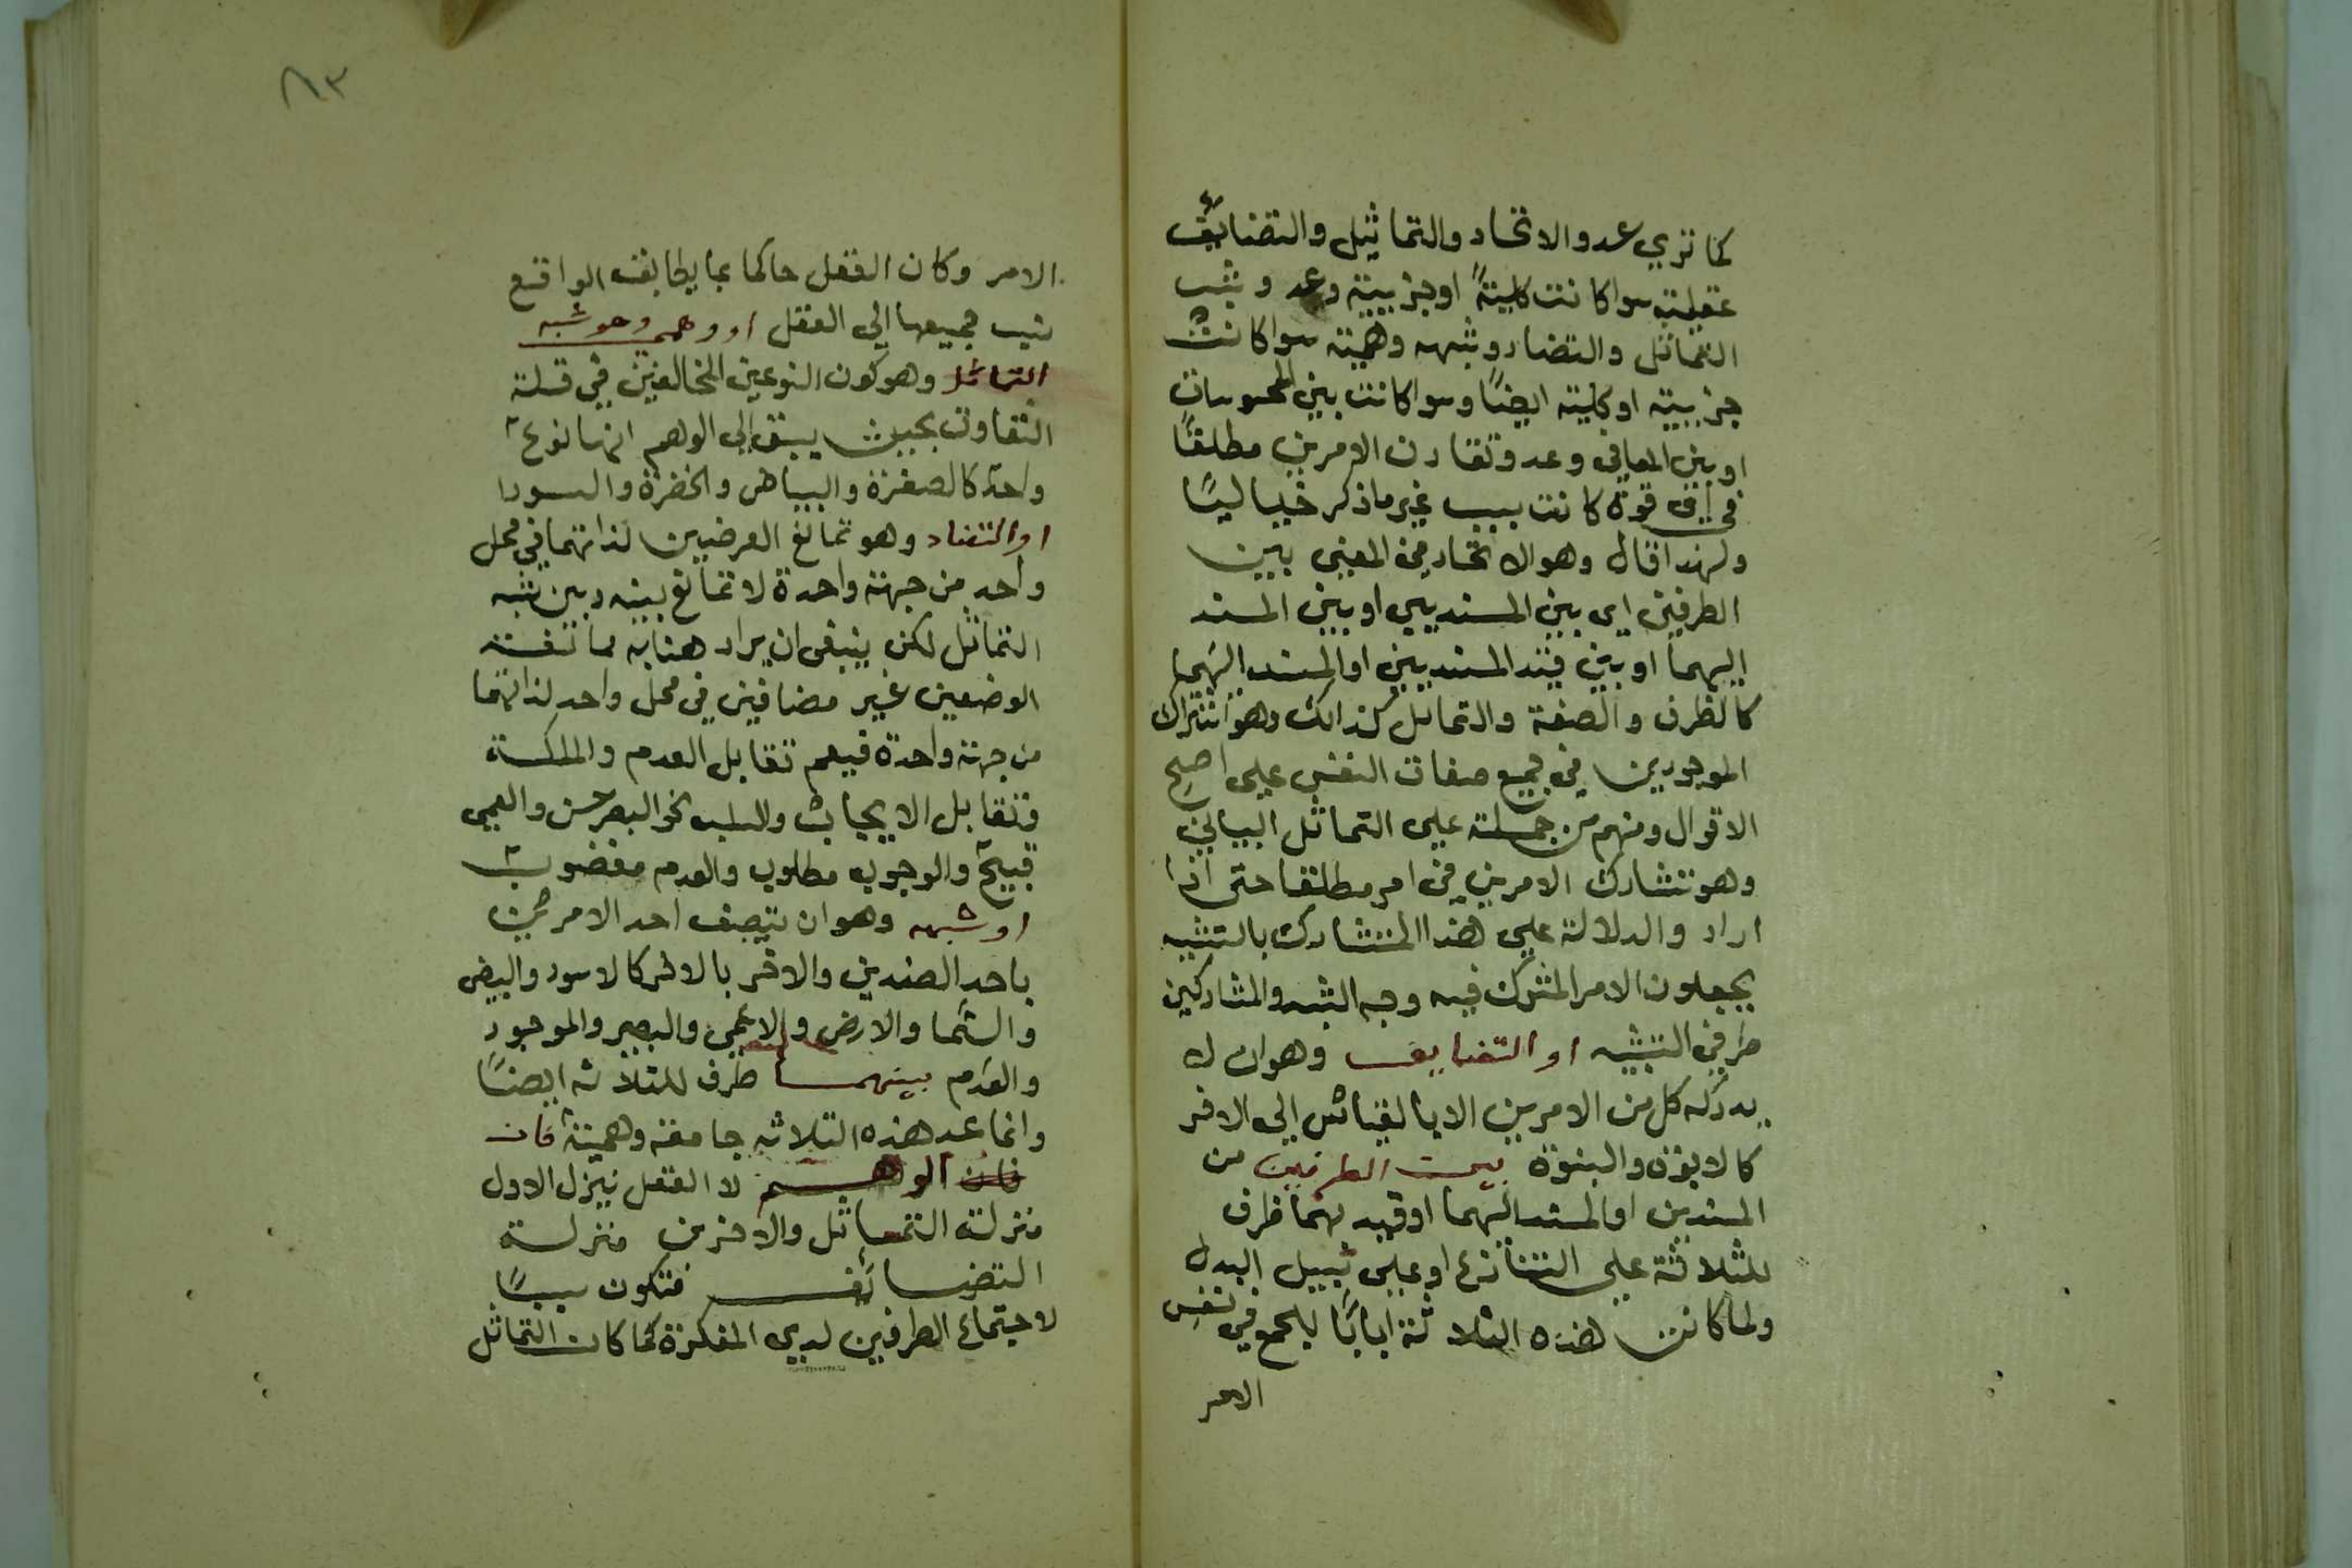 كما تري عدوا الاتحاد والتماثيل والتضايف
عقلية سوا كانت كلية او جزيية وعد وشبه
التماثل والتضاد وشبهه وهمية سوا كانت
جزيية او كلية ايضا وسوا كانت بين المحسوسات
او بين المعاني وعد وتقارن الامرين مطلقا
في اي قوة كانت بسبب غير ما ذكر خياليا
ولهذا قال وهو الاتحاد في المعني بين
الطرفين اي بين المسنديين او بين المسند
اليهما او بين قيد المسنديين او المسند اليهما
كالظرف والصفة والتماثل كذالك وهو اشتراك
الموجودين في جميع صفات النفس علي اصح
الاقوال ومنهم من حمله علي التماثل البياني
وهو تشارك الامرين في امر مطلقا حتى اذا
اراد والدلالة علي هذا المتشارك بالتشبيه
يجعلون الامر المشترك فيه وجه الشبه والمشاركين
طرفي التشبيه او التضايف وهو ان لا
يدركه كل من الامرين الا بالقياس الي الاخر
كالابوة والبنوة بين الطرفين من
المسندين او المسند اليهما او قيد بهما ظرف
للثلاثة علي التنازع او علي سبيل البدل
ولما كانت هذه الثلاثة اسبابا للجمع في نفس
الامر
٨٣
الامر وكان العقل حاكما بما يطابق الواقع
نسب جميعها الي العقل او وهمي وهو شبه
التماثل وهو كون النوعين المخالفين في قلة
التفاوت بحيث يسبق الي الوهم انهما نوع
واحد كالصفرة والبياض والخضرة والسودا
او التضاد وهو تمانع العرضيين لذاتهما في محل
واحد من جهة واحدة لا تمانع بينه وبين شبه
التماثل لكن ينبغي ان يراد هنا به مما تفسه
الوضعين غير مضافين في محل واحد لذاتهما
من جهة واحدة فيعم تقابل العدم والملكة
وتقابل الايجاب والسلب نحو البصر حسن والعمي
قبيح والوجوب مطلوب والعدم مغضوب
او شبهه وهو ان يتصف احد الامرين
باحد الضدين والاخر بالاخر كالاسود والبيض
والسما والارض والاعمي والبصير والموجود
والعدم بينهما ظرف للثلاثه ايضا
وانما عد هذه الثلاثه جامعة وهمية فان
فان الوهم لا العقل نيزل الاول
منزلة التماثل والاخرين منزلة
التضايف فتكون سببا
لاجتماع الطرفين لدي المفكرة كما كان التماثل